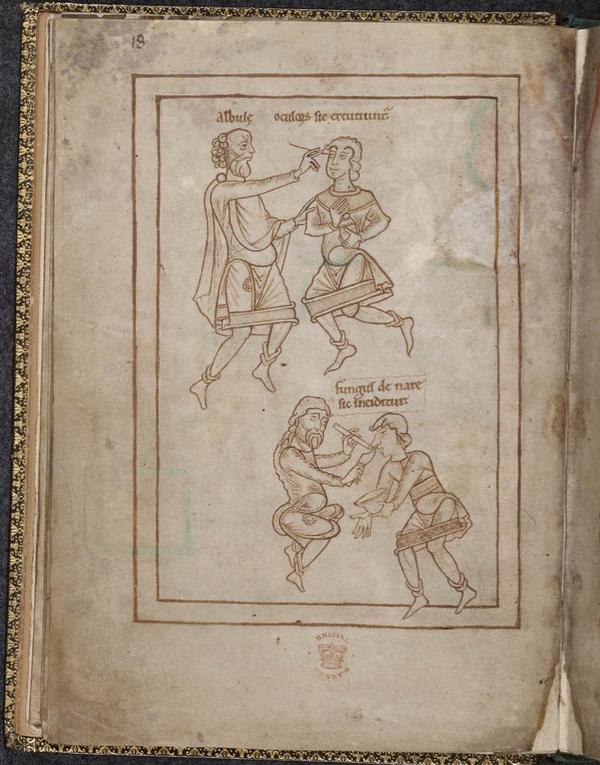 18
albulę oculoꝝ sic excutiunt᷑
fungus de nare
sic inciditur
BRITISH
MUSEUM